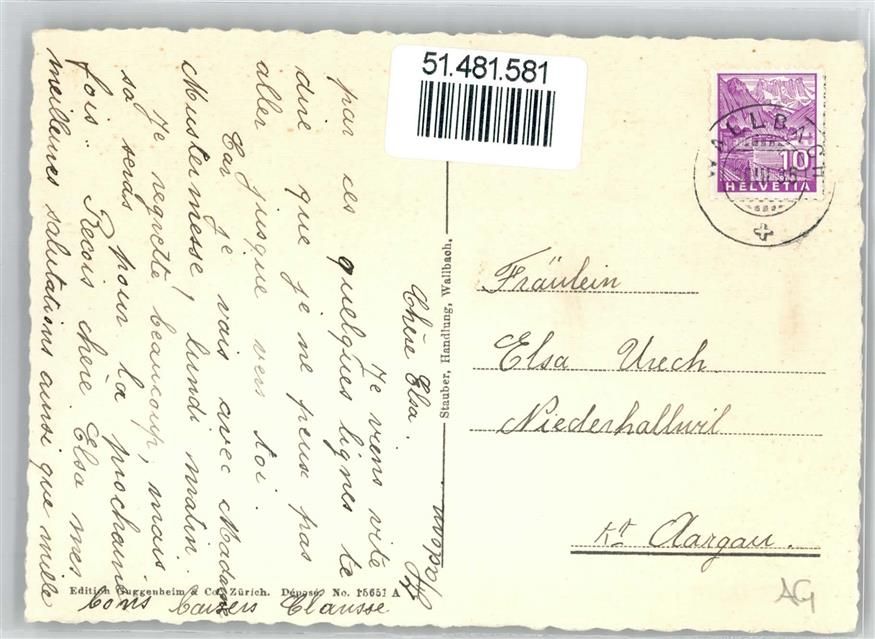 51.481.581
WALLBACH
10
HELVETIA
Chère Elsa.
Je viens vite
par ces quelques lignes te
dire que je ne peux pas
aller jusque vers toi.
Car je vais avec Madame
Mustermesse, lundi matin.
Je regrette beaucoup, mais
sa serds pour la prochaine
fois. Recois chère Elsa mes
meilleures salutations ainsi que mille
bons baisers Clausse
Stauber, Handlung, Wallbach.
Fräulein
Elsa Urech
Niederhallwil
Kt Aargau.
Edition Guggenheim & Co. Zürich. Déposé. No. 15651 A
AG